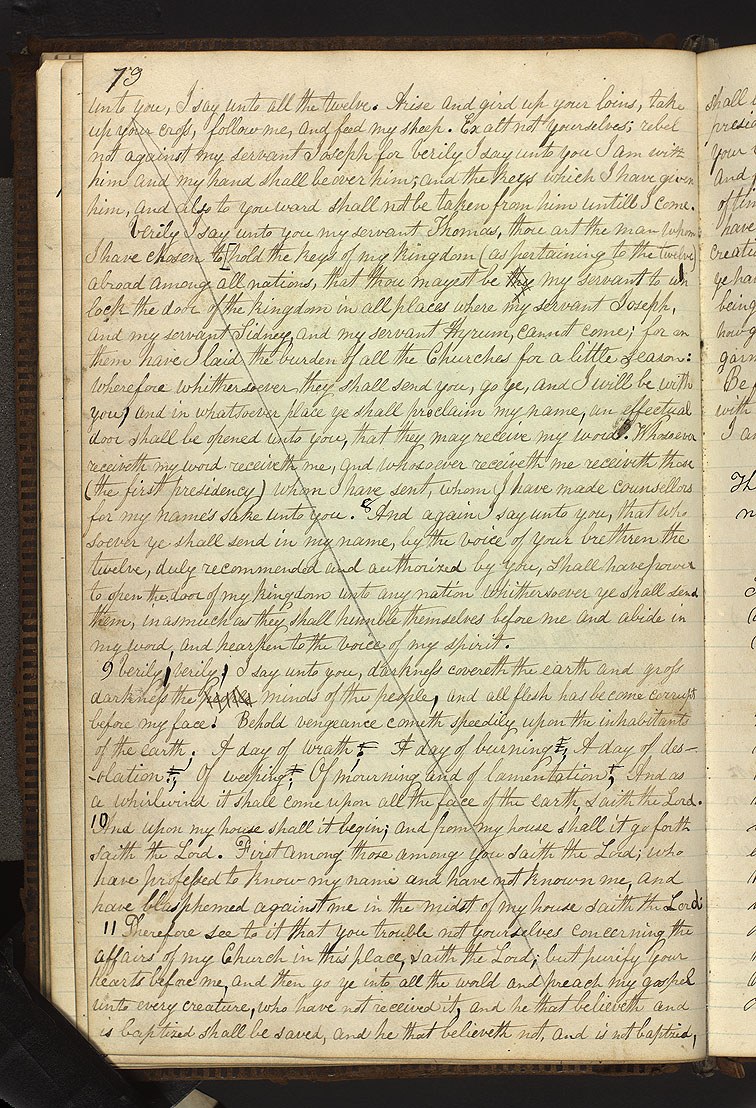 73
unto you, I say unto all the twelve. Arise and gird up your loins, take
up your cross, follow me, and feed my sheep. Exalt not yourselves; rebel
not against my servant Joseph for Verily I say unto you I am with
him and my hand shall be over him; and the keys which I have given
him, and also to you ward shall not be taken from him untill I come.
Verily I say unto you my servant Thomas, thou art the man whom
I have chosen to [hold the keys of my kingdom (as pertaining to the twelve)
abroad among all nations, that thou mayest be thy my servant to un
lock the door of the kingdom in all places where my servant Joseph,
and my servant Sidney, and my servant Hyrum, cannot come; for on
them have I laid the burden of all the Churches for a little season:
wherefore whithersoever, they shall send you, go ye, and I will be with
you, and in whatsoever place ye shall proclaim my name, an effectual
door shall be opened unto you, that they may receive my word. Whosoever
receiveth my word receiveth me, and whosoever receiveth me receiveth those
(the first presidency) whom I have sent, whom I have made counsellors
for my name's sake unto you. 8 And again I say unto you, that who
soever ye shall send in my name, by the voice of your brethren the
twelve, duly recommended and authorized by you, shall have power
to open the door of my kingdom unto any nation whithersoever ye shall send
them, inasmuch as they shall humble themselves before me and abide in
my word, and hearken to the voice of my spirit.
9 verily, verily, I say unto you, darkness covereth the earth and gross
darkness the minds of the people, and all flesh has become corrupt
before my face! Behold vengeance cometh speedily upon the inhabitants
of the earth. A day of wrath; A day of burning; A day of des-
-olation; Of weeping; Of mourning and of lamentation; And as
a whirlwind it shall come upon all the face of the earth saith the Lord.
10 And upon my house shall it begin; and from my house shall it go forth
saith the Lord. First among those among you saith the Lord; who
have professed to know my name and have not known me, and
have blasphemed against me in the midst of my house saith the Lord:
11 Therefore see to it that you trouble not yourselves concerning the
affairs of my Church in this place, saith the Lord; but purify your
hearts before me, and then go ye into all the world and preach my gospel
unto every creature, who have not received it, and he that believeth and
is baptized shall be saved, and he that believeth not, and is not baptized,